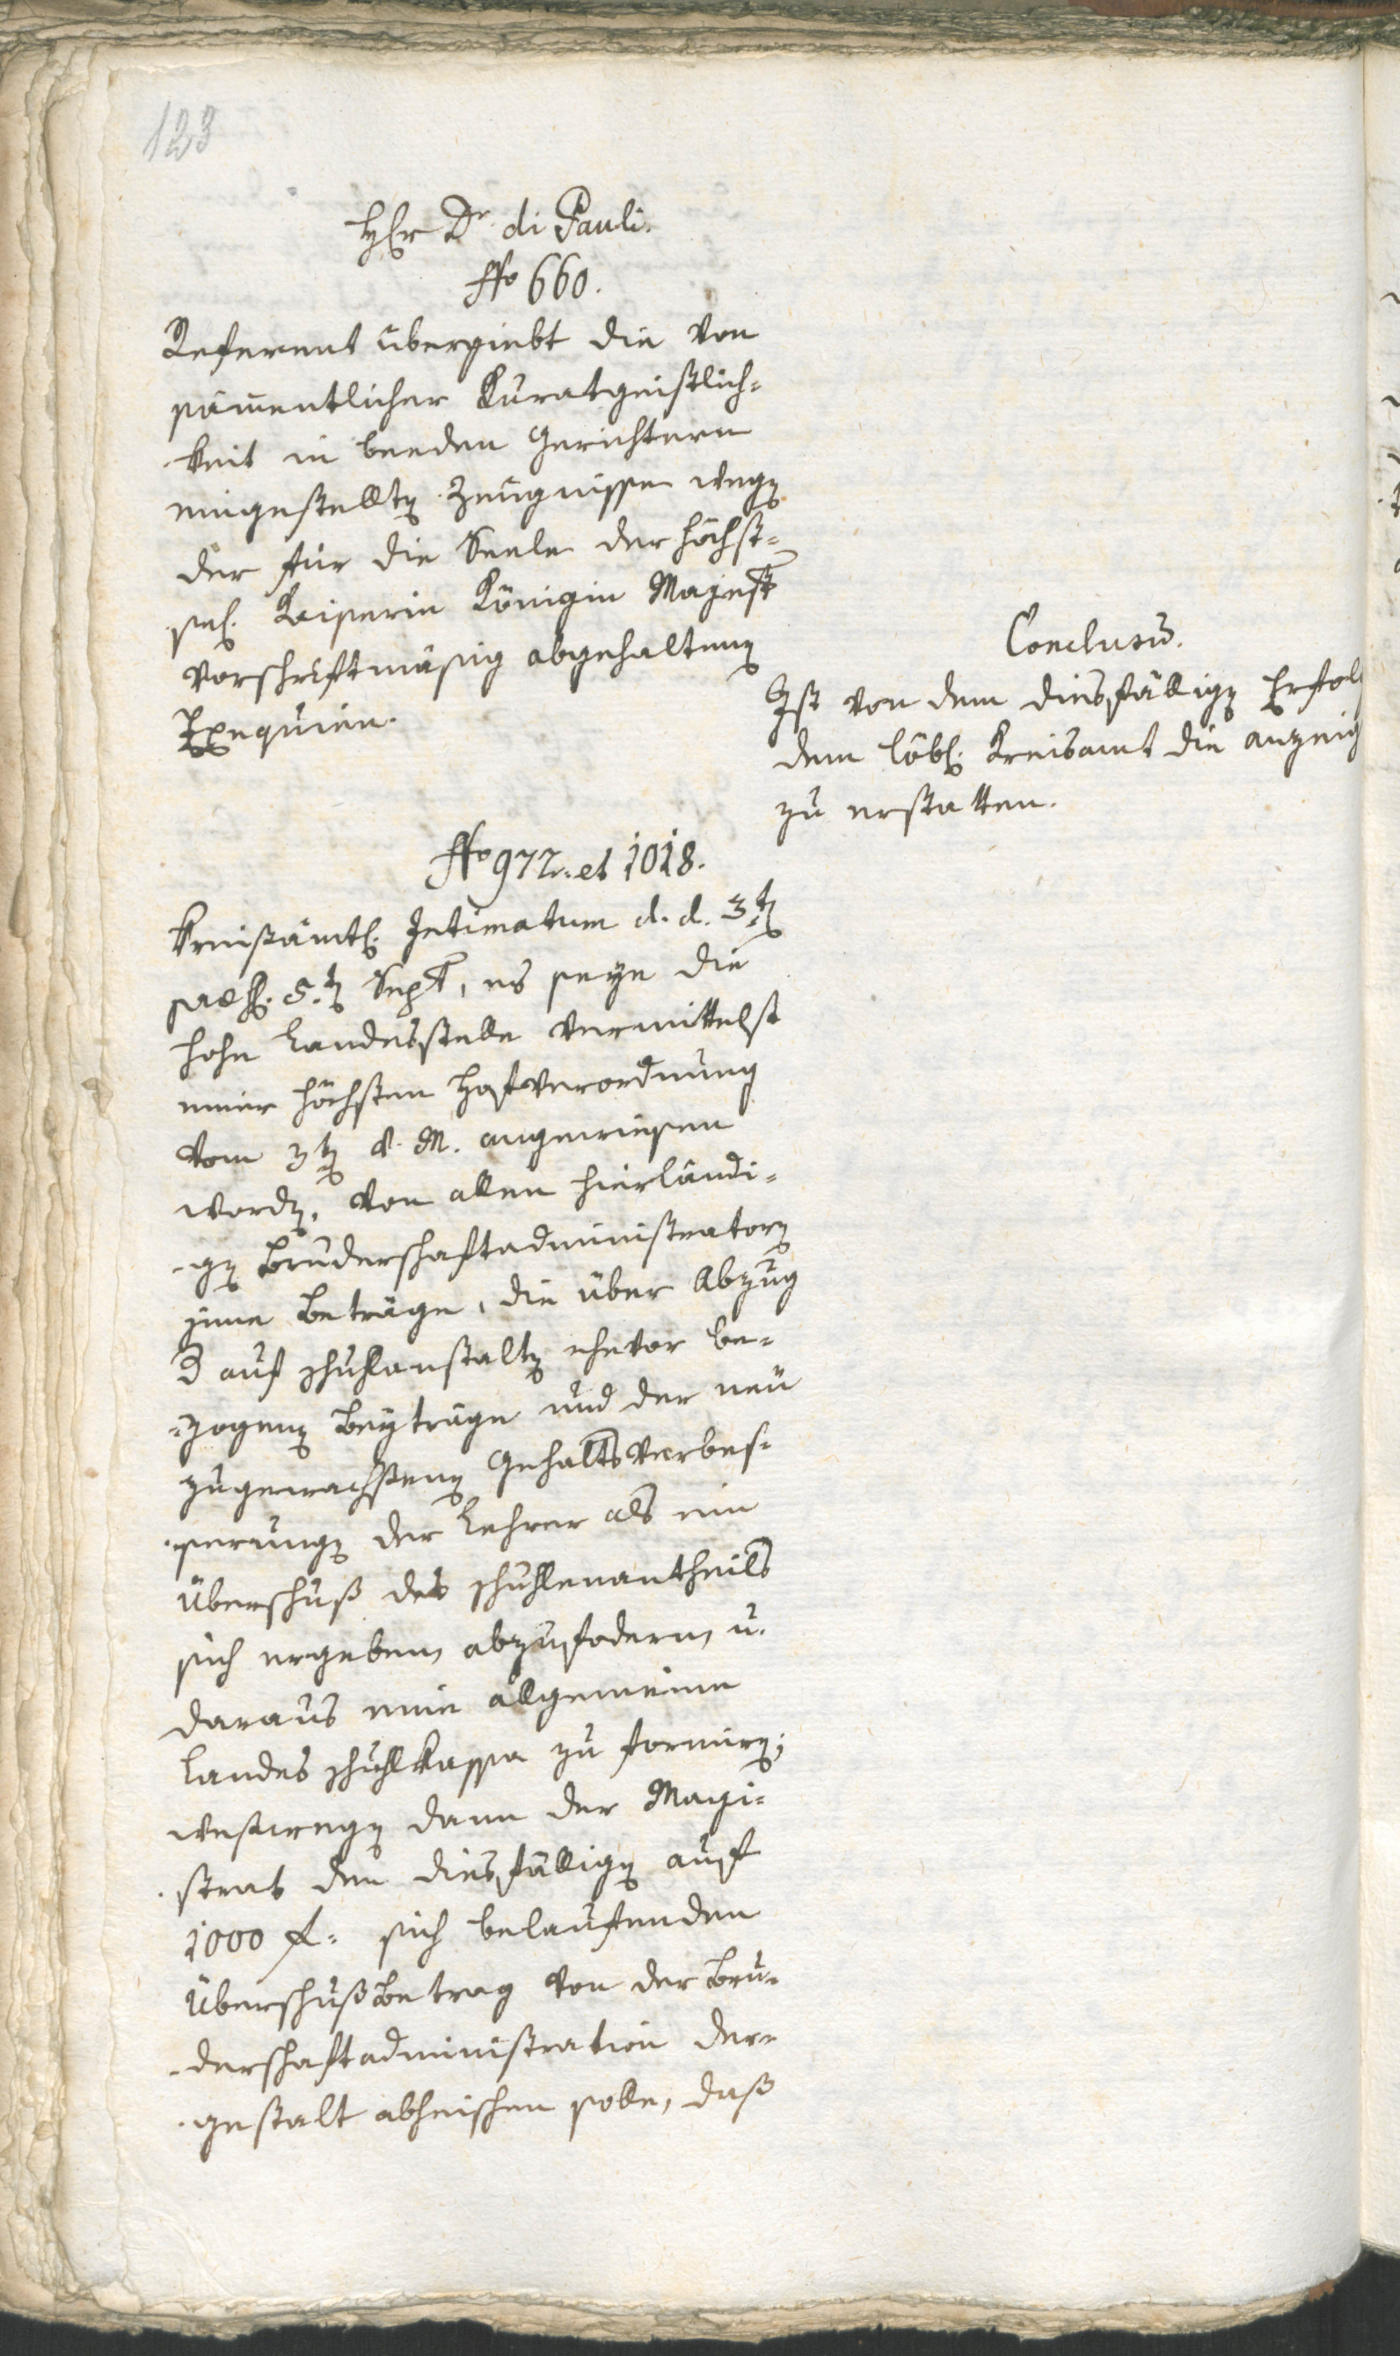 123
HEr Dr di Pauli.
No 660.
Referent übergiebt die von
sämmentlicher Kuratgeistlich-
keit in beeden Gerichtern
eingestellten Zeugnisse wegen
der für die Seele der höchst-
sel. Kaiserin Königin Majest
vorschriftmäsig abgehaltenen
Exequien.
Conclusum.
Ist von dem diesfälligen Erfolg
dem löbl. Kreisamt die anzeig
zu erstatten.
No 972. et 1018.
Kreisämtl. Intimatum d. d. 3ten
5.ten Sept, es seye die
hohe Landesstelle vermittelst
einer höchsten Hofverordnung
vom 3ten d. M. angewiesen
worden, von allen hierländi-
gen Bruderschaftadministratoren
jene Beträge, die über Abzug
d auf schuhlanstalten ehevor be-
zogenen Beyträge und der neu
zugewachsenen Gehaltsverbes-
serungen der Lehrer als ein
Überschuß des schuhlenantheils
sich ergeben, abzufodern, u.
daraus eine allgemeine
Landes schuhlkassa zu formiren;
weswegen dann der Magi-
strat den diesfälligen auf
1000 f. sich belaufenden
Überschußbetrag von der Bru-
derschaftadministration der-
gestalt abheischen solle, daß